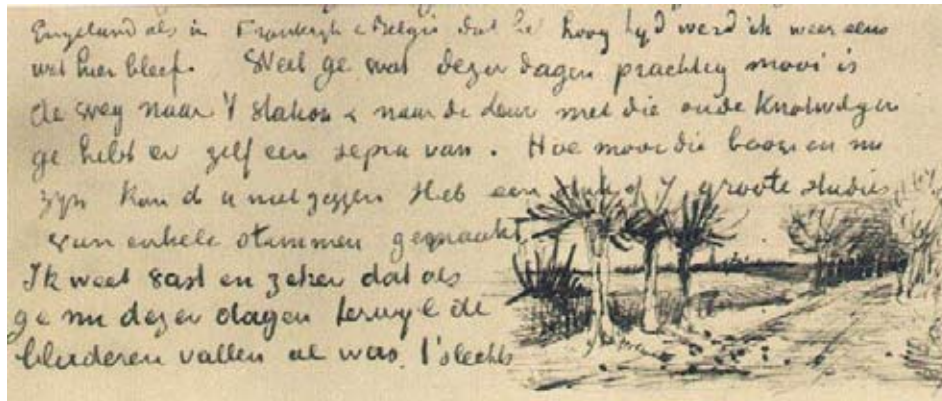 Engeland als in Frankrijk & België dat het hoog tyd werd ik weer eens
wat hier bleef. Weet ge wat dezer dagen prachtig mooi is
de weg naar 't station & naar de leur met die oude Knotwilgen
ge hebt er zelf een sepia van. Hoe mooi die boomen nu
zyn kan ik u niet zeggen Heb een stuk of 7 groote studies
van enkele stammen gemaakt
Ik weet vast en zeker dat als
ge nu dezer dagen terwyl de
bladeren vallen al was 't slechts